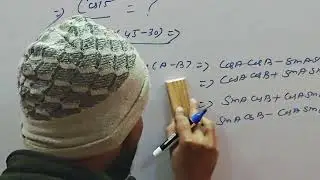 ⇒ Cos15 = ?
45-30) ⇒
(A-B) ⇒ CosA CosB - SinA Sin
⇒ CosA CosB + SinA Sin
⇒ SinA CosB + CosA Sin
SinA CosB - CosA Sin